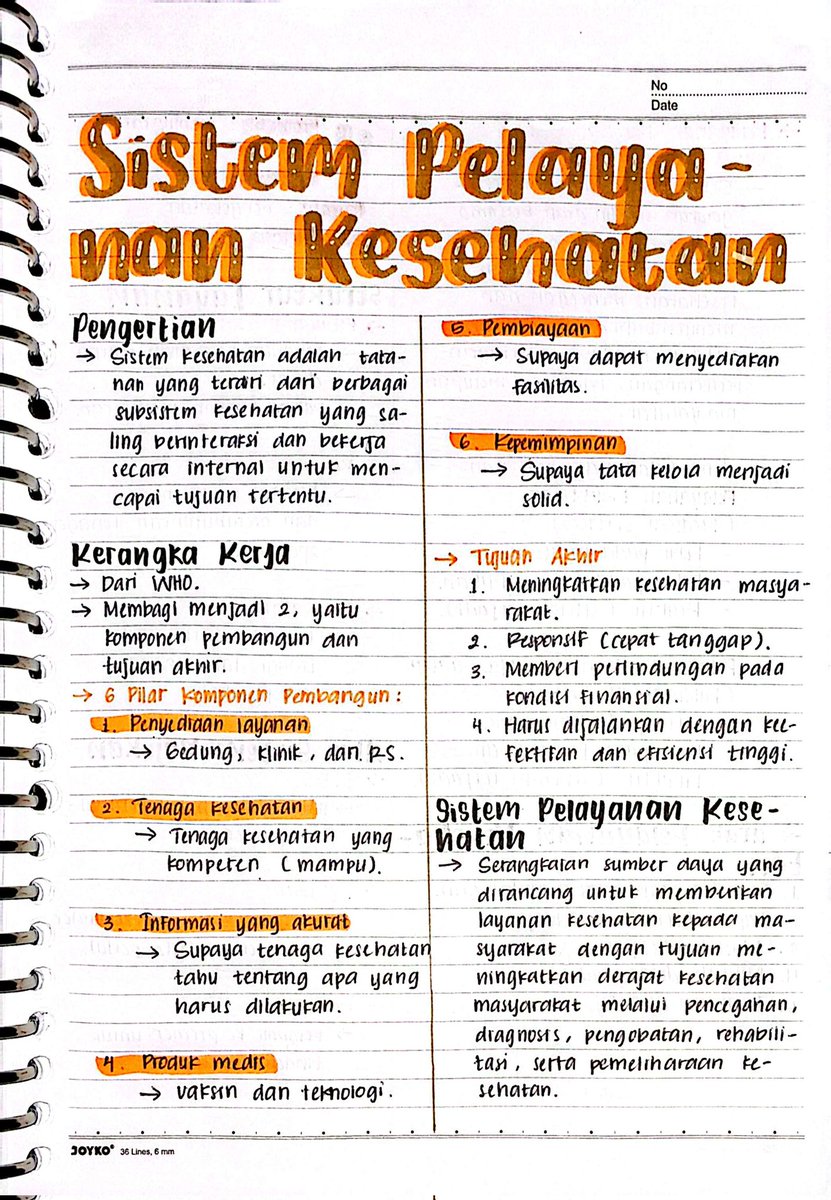 No
Date
Sistem Pelaya-
nan Kesehatan
Pengertian
→ Sistem kesehatan adalah tata-
nan yang terdiri dari berbagai
subsistem kesehatan yang sa-
ling berinteraksi dan bekerja
secara internal untuk men-
capai tujuan tertentu.
Kerangka Kerja
→ Dari WHO.
→ Membagi menjadi 2, yaitu
komponen pembangun dan
tujuan akhir.
→ 6 Pilar Komponen Pembangun :
1. Penyediaan layanan
→ Gedung, klinik, dan RS.
2. Tenaga kesehatan
→ Tenaga kesehatan yang
kompeten (mampu).
3. Informasi yang akurat
→ Supaya tenaga kesehatan
tahu tentang apa yang
harus dilakukan.
4. Produk medis
→ vaksin dan teknologi.
5. Pembiayaan
→ Supaya dapat menyediakan
fasilitas.
6. Kepemimpinan
→ Supaya tata kelola menjadi
solid.
→ Tujuan Akhir
1. Meningkatkan kesehatan masya-
rakat.
2. Responsif (cepat tanggap).
3. Memberi perlindungan pada
kondisi finansial.
4. Harus dijalankan dengan kee-
fektifan dan efisiensi tinggi.
Sistem Pelayanan Kese-
hatan
→ Serangkaian sumber daya yang
dirancang untuk memberikan
layanan kesehatan kepada ma-
syarakat dengan tujuan me-
ningkatkan derajat kesehatan
masyarakat melalui pencegahan,
diagnosis, pengobatan, rehabili-
tasi, serta pemeliharaan ke-
sehatan.
JOYKO® 36 Lines, 6 mm